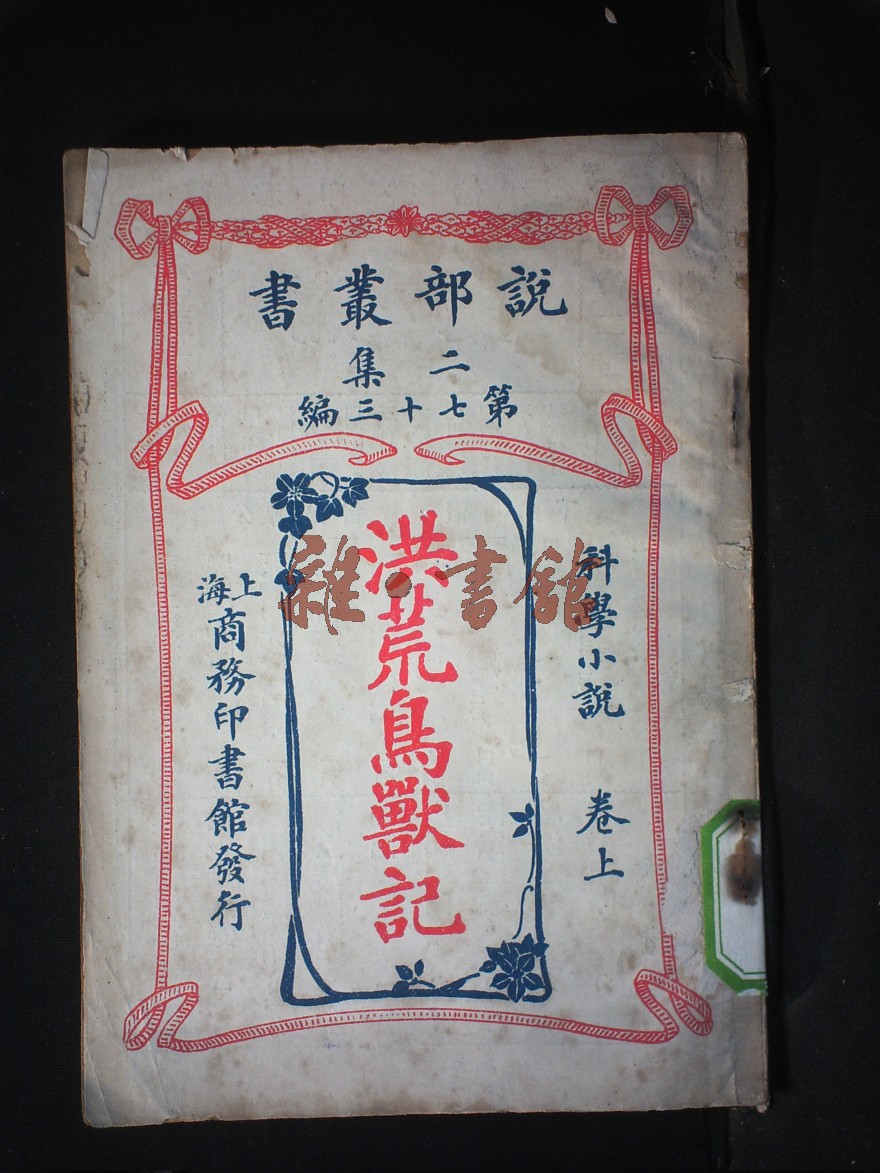 說部叢書
二集
第七十三編
科學小說 卷上
洪荒鳥獸記
上海
商務印書館發行
雜·書館